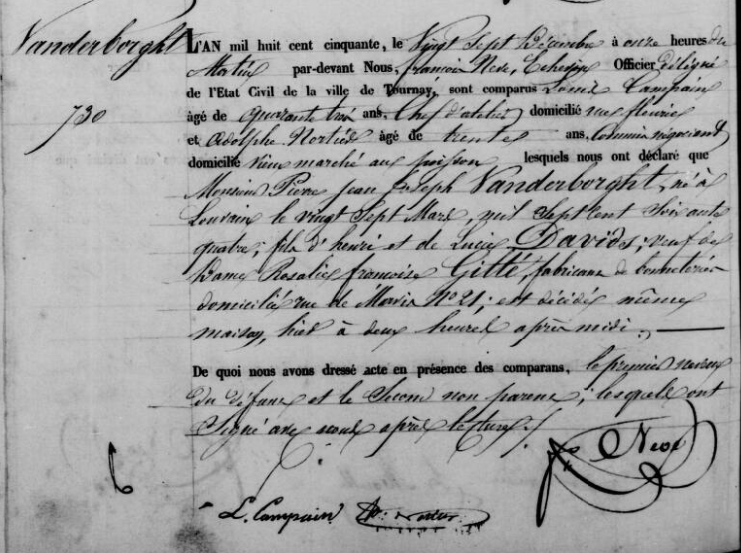 Vanderborght
730
L'AN mil huit cent cinquante, le Vingt Sept Décembre à onze heures du
Matin par-devant Nous, francois Nève, Echevin Officier délégué
de l'Etat Civil de la ville de Tournay, sont comparus Campain
âgé de quarante trois ans, Chef d'atelier domicilié rue fleurie
et Adolphe âgé de trente ans, Commis négociant
domicilié vieux marché aux poisson lesquels nous ont déclaré que
Monsieur Pierre Jean Joseph Vanderborght, né à
Louvain le vingt Sept Mars, mil Sept Cent Soixante
quatre, fils d'henri et de Lucie Davids, veuf de
Dame Rosalie francoise Gitté, fabricant de bonneterie
domicilié rue de No 21, est décédé même
maison, hier à deux heures après midi.
De quoi nous avons dressé acte en présence des comparans, le premier neveu
du défunt et le Second non parent, lesquels ont
Signé avec nous après lecture.
Nève
L. Campain